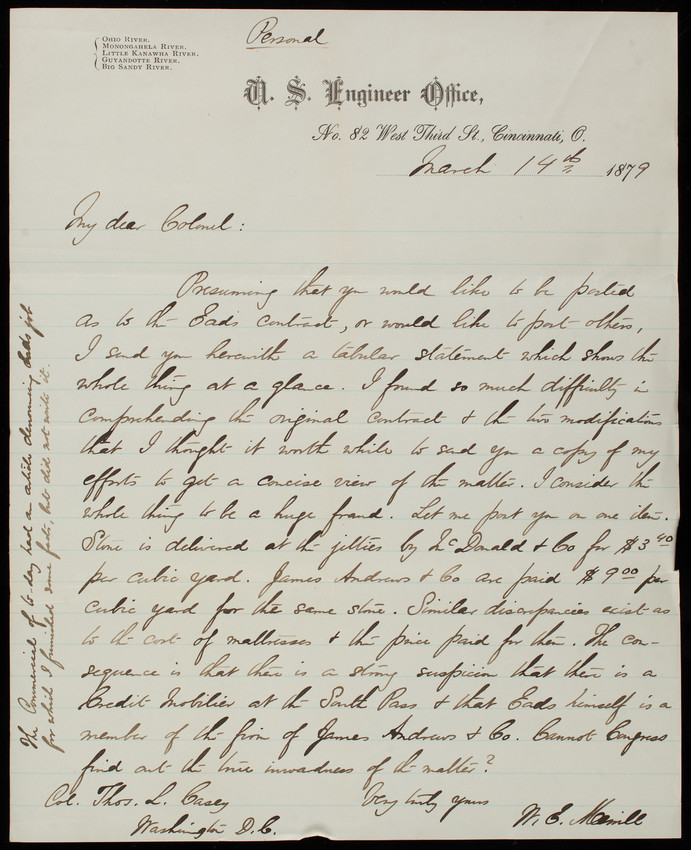 Ohio River.
Monongahela River.
Little Kanawha River.
Guyandotte River.
Big Sandy River.
Personal
U. S. Engineer Office,
No. 82 West Third St., Cincinnati, O.
March 14th 1879
My dear Colonel:
Presuming that you would like to be posted
as to the Eads contract, or would like to post others,
I send you herewith a tabular statement which shows the
whole thing at a glance. I found so much difficulty in
comprehending the original contract & the two modifications
that I thought it worth while to send you a copy of my
efforts to get a concise view of the matter. I consider the
whole thing to be a huge fraud. Let me post you on one item.
Stone is delivered at the jetties by McDonald & Co for $3.40
per cubic yard. James Andrews & Co are paid $9.00 per
cubic yard for the same stone. Similar discrepancies exist as
to the cost of mattresses & the price paid for them. The con-
sequence is that there is a strong suspicion that there is a
Credit Mobilier at the South Pass & that Eads himself is a
member of the firm of James Andrews & Co. Cannot Congress
find out the true inwardness of the matter?
Very truly yours
W. E. Merrill
Col. Thos. L. Casey
Washington D.C.
The Commercial of to-day had an article denouncing Eads job
for which I furnished some facts, but did not write it.